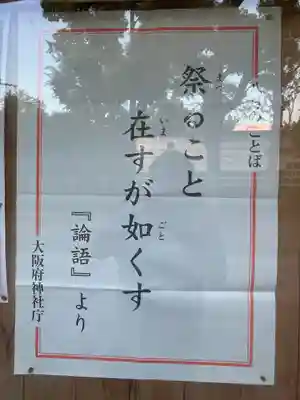 ことば
祭ること
在すが如くす
『論語』より
大阪府神社庁